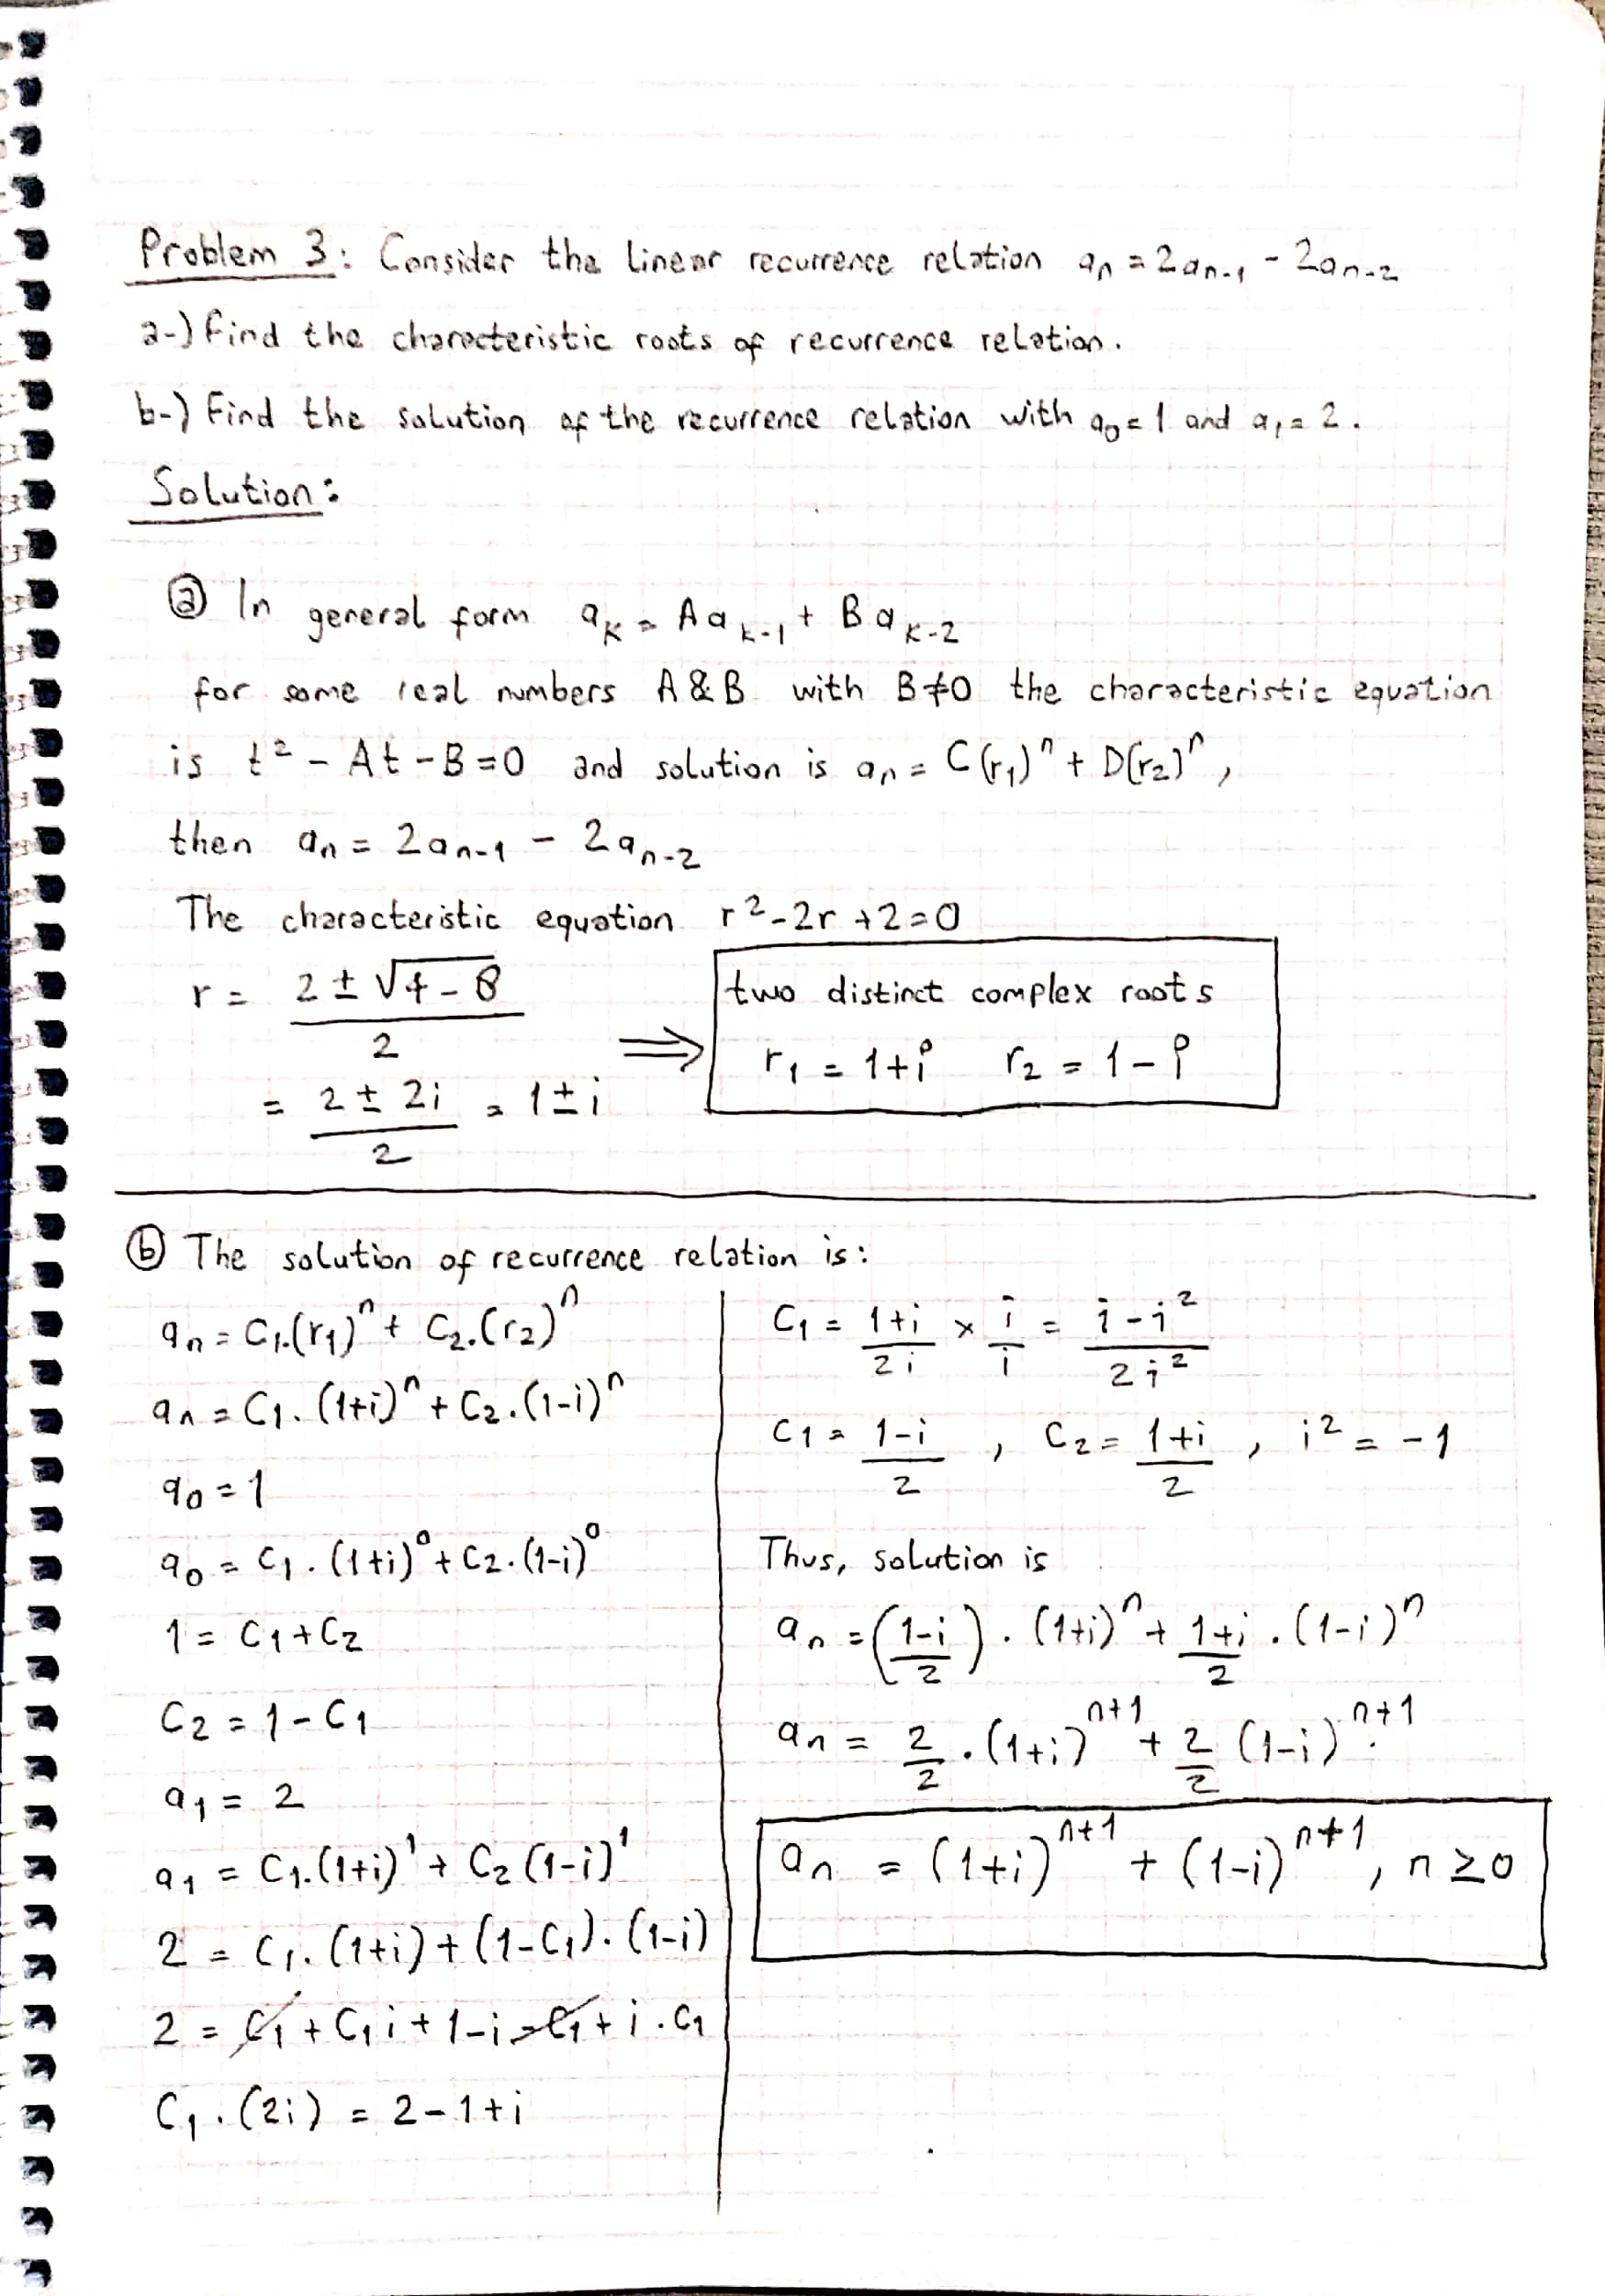 Problem 3: Consider the linear recurrence relation aₙ = 2aₙ₋₁ - 2aₙ₋₂
a-) Find the characteristic roots of recurrence relation.
b-) Find the solution of the recurrence relation with a₀ = 1 and a₁ = 2.
Solution:
ⓐ In general form aₖ = Aaₖ₋₁ + Baₖ₋₂
for some real numbers A & B with B≠0 the characteristic equation
is t² - At - B = 0 and solution is aₙ = C(r₁)ⁿ + D(r₂)ⁿ,
then aₙ = 2aₙ₋₁ - 2aₙ₋₂
The characteristic equation r² - 2r + 2 = 0
r = (2 ± √4-8)/2
= (2 ± 2i)/2 = 1 ± i
⟹ two distinct complex roots
r₁ = 1+i r₂ = 1-i
ⓑ The solution of recurrence relation is:
aₙ = C₁.(r₁)ⁿ + C₂.(r₂)ⁿ
aₙ = C₁.(1+i)ⁿ + C₂.(1-i)ⁿ
a₀ = 1
a₀ = C₁.(1+i)⁰ + C₂.(1-i)⁰
1 = C₁ + C₂
C₂ = 1 - C₁
a₁ = 2
a₁ = C₁.(1+i)¹ + C₂(1-i)¹
2 = C₁.(1+i) + (1-C₁).(1-i)
2 = C₁ + C₁i + 1 - i - C₁ + i.C₁
C₁.(2i) = 2-1+i
C₁ = (1+i)/2i × i/i = (i-i²)/2i²
C₁ = (1-i)/2 , C₂ = (1+i)/2 , i² = -1
Thus, solution is
aₙ = ((1-i)/2).(1+i)ⁿ + (1+i)/2.(1-i)ⁿ
aₙ = 2/2.(1+i)ⁿ⁺¹ + 2/2 (1-i)ⁿ⁺¹.
aₙ = (1+i)ⁿ⁺¹ + (1-i)ⁿ⁺¹, n≥0